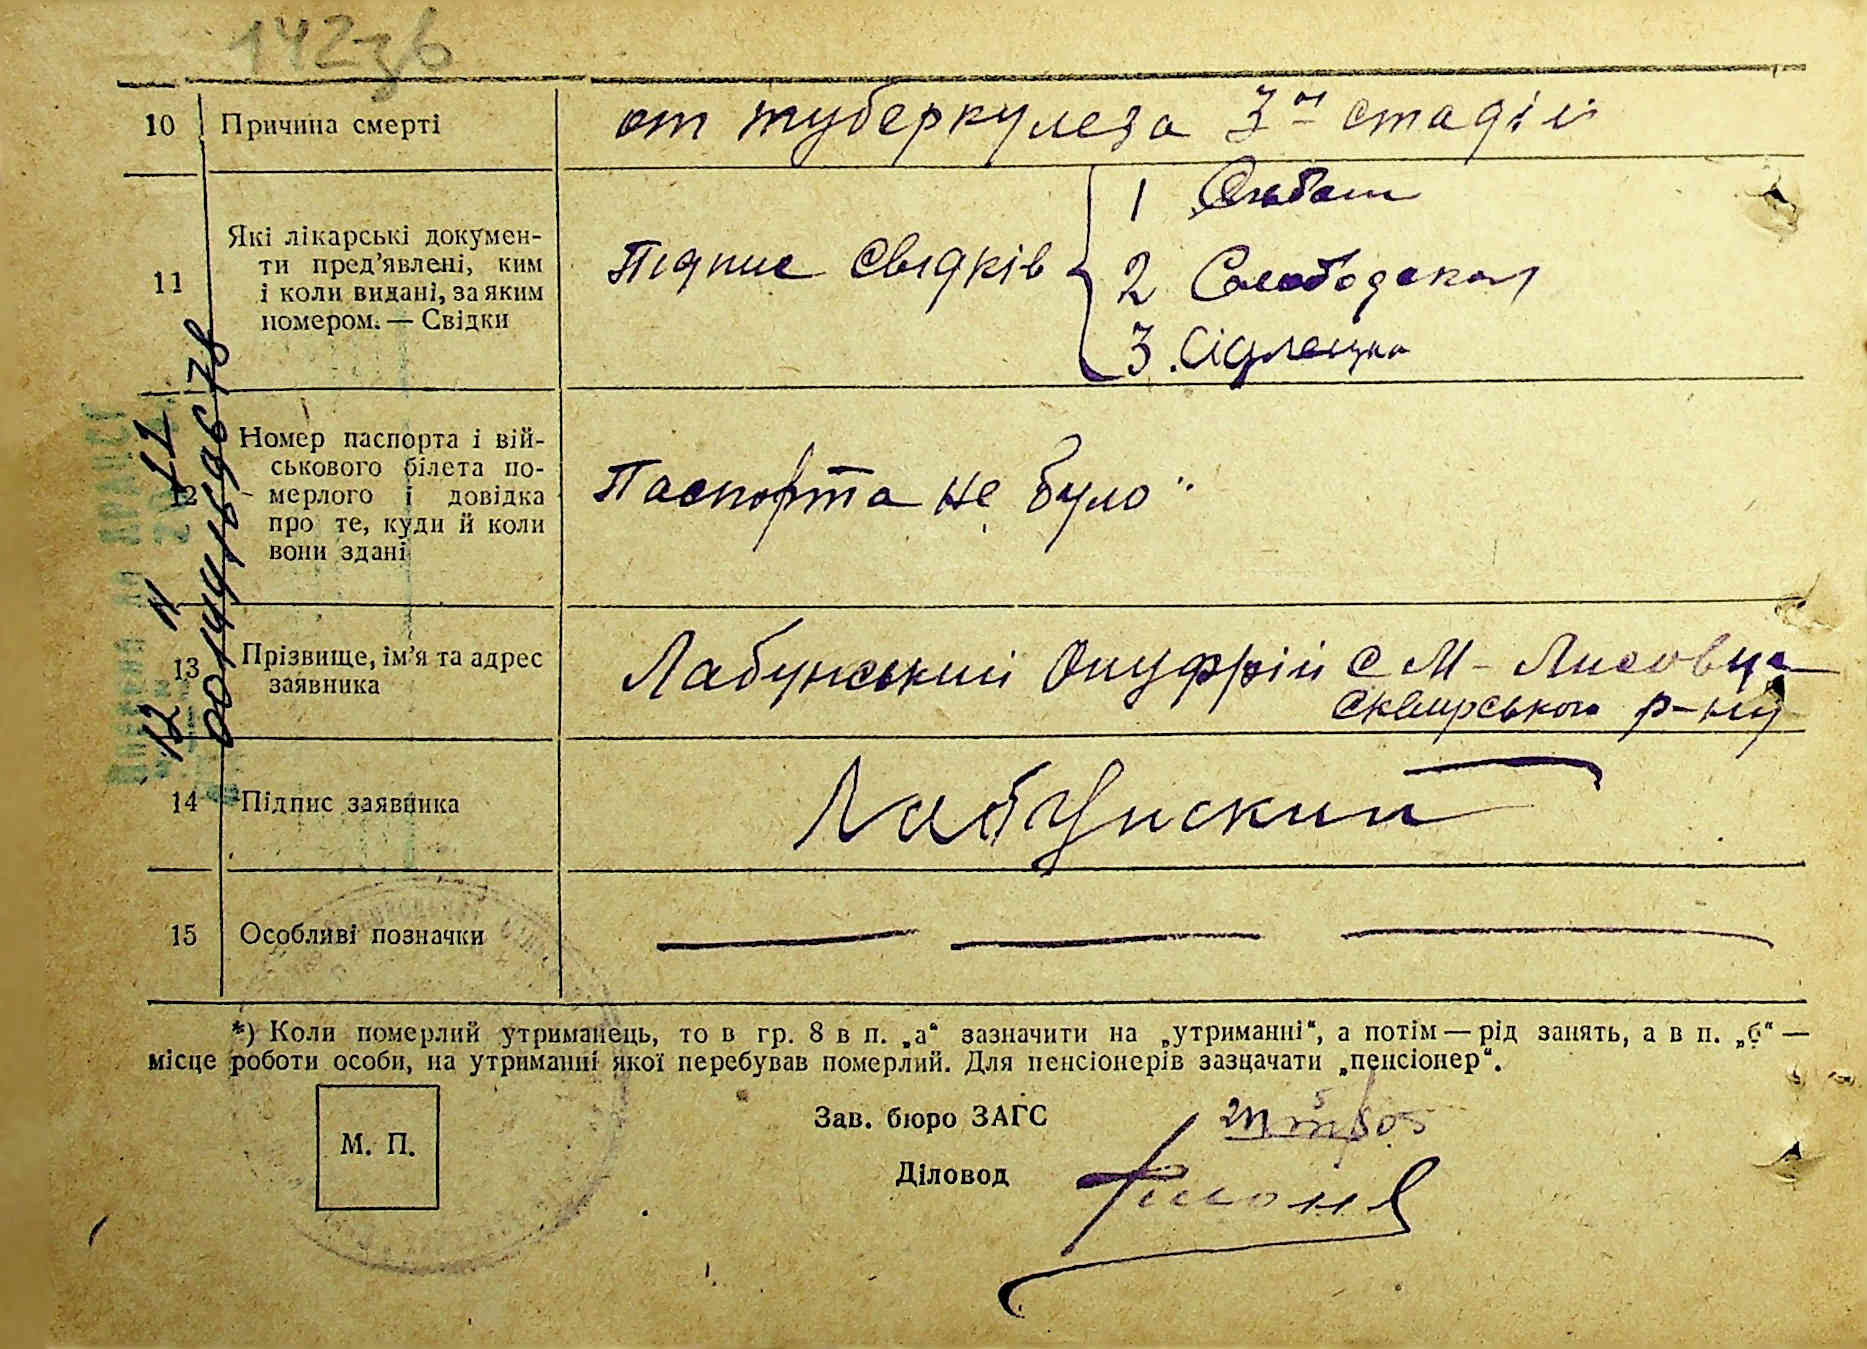 142зв
10 Причина смерті от туберкулеза 3й стадіи
11 Які лікарські докумен-
ти пред'явлені, ким
і коли видані, за яким
номером. — Свідки
Підпис свідків
1
2 Слободская
3. Сідлецка
12 Номер паспорта і вій-
ськового білета по-
мерлого і довідка
про те, куди й коли
вони здані
Паспорта не було"
13 Прізвище, ім'я та адрес
заявника
Лабунський Онуфрій с М- Лисовці
Сквирського р-ну
14 Підпис заявника Лабунский
15 Особливі позначки
*) Коли померлий утриманець, то в гр. 8 в п. „а" зазначити на „утриманні", а потім — рід занять, а в п. „б" —
місце роботи особи, на утриманні якої перебував померлий. Для пенсіонерів зазначати „пенсіонер".
М. П.
Зав. бюро ЗАГС
Діловод